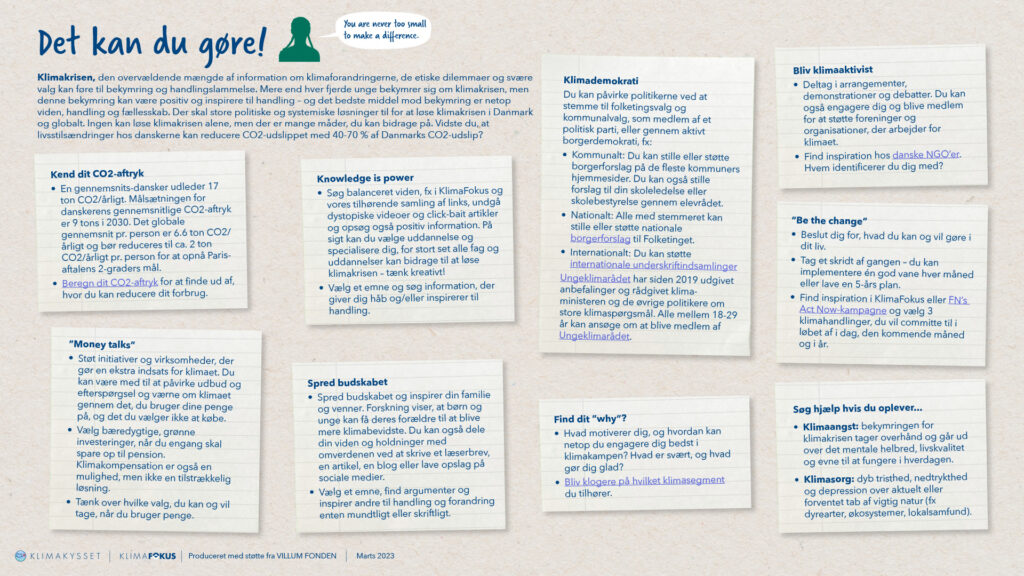 Det kan du gøre!
You are never too small
to make a difference.
Klimakrisen, den overvældende mængde af information om klimaforandringerne, de etiske dilemmaer og svære
valg kan føre til bekymring og handlingslammelse. Mere end hver fjerde unge bekymrer sig om klimakrisen, men
denne bekymring kan være positiv og inspirere til handling – og det bedste middel mod bekymring er netop
viden, handling og fællesskab. Der skal store politiske og systemiske løsninger til for at løse klimakrisen i Danmark
og globalt. Ingen kan løse klimakrisen alene, men der er mange måder, du kan bidrage på. Vidste du, at
livsstilsændringer hos danskerne kan reducere CO2-udslippet med 40-70 % af Danmarks CO2-udslip?
Kend dit CO2-aftryk
• En gennemsnits-dansker udleder 17
ton CO2/årligt. Målsætningen for
danskerens gennemsnitlige CO2-aftryk
er 9 tons i 2030. Det globale
gennemsnit pr. person er 6.6 ton CO2/
årligt og bør reduceres til ca. 2 ton
CO2/årligt pr. person for at opnå Paris-
aftalens 2-graders mål.
• Beregn dit CO2-aftryk for at finde ud af,
hvor du kan reducere dit forbrug.
"Money talks"
• Støt initiativer og virksomheder, der
gør en ekstra indsats for klimaet. Du
kan være med til at påvirke udbud og
efterspørgsel og værne om klimaet
gennem det, du bruger dine penge
på, og det du vælger ikke at købe.
• Vælg bæredygtige, grønne
investeringer, når du engang skal
spare op til pension.
Klimakompensation er også en
mulighed, men ikke en tilstrækkelig
løsning.
• Tænk over hvilke valg, du kan og vil
tage, når du bruger penge.
Knowledge is power
• Søg balanceret viden, fx i KlimaFokus og
vores tilhørende samling af links, undgå
dystopiske videoer og click-bait artikler
og opsøg også positiv information. På
sigt kan du vælge uddannelse og
specialisere dig, for stort set alle fag og
uddannelser kan bidrage til at løse
klimakrisen – tænk kreativt!
• Vælg et emne og søg information, der
giver dig håb og/eller inspirerer til
handling.
Spred budskabet
• Spred budskabet og inspirer din familie
og venner. Forskning viser, at børn og
unge kan få deres forældre til at blive
mere klimabevidste. Du kan også dele
din viden og holdninger med
omverdenen ved at skrive et læserbrev,
en artikel, en blog eller lave opslag på
sociale medier.
• Vælg et emne, find argumenter og
inspirer andre til handling og forandring
enten mundtligt eller skriftligt.
Klimademokrati
Du kan påvirke politikerne ved at
stemme til folketingsvalg og
kommunalvalg, som medlem af et
politisk parti, eller gennem aktivt
borgerdemokrati, fx:
• Kommunalt: Du kan stille eller støtte
borgerforslag på de fleste kommuners
hjemmesider. Du kan også stille
forslag til din skoleledelse eller
skolebestyrelse gennem elevrådet.
• Nationalt: Alle med stemmeret kan
stille eller støtte nationale
borgerforslag til Folketinget.
• Internationalt: Du kan støtte
internationale underskriftindsamlinger
Ungeklimarådet har siden 2019 udgivet
anbefalinger og rådgivet klima-
ministeren og de øvrige politikere om
store klimaspørgsmål. Alle mellem 18-29
år kan ansøge om at blive medlem af
Ungeklimarådet.
Find dit "why"?
• Hvad motiverer dig, og hvordan kan
netop du engagere dig bedst i
klimakampen? Hvad er svært, og hvad
gør dig glad?
• Bliv klogere på hvilket klimasegment
du tilhører.
Bliv klimaaktivist
• Deltag i arrangementer,
demonstrationer og debatter. Du kan
også engagere dig og blive medlem
for at støtte foreninger og
organisationer, der arbejder for
klimaet.
• Find inspiration hos danske NGO'er.
Hvem identificerer du dig med?
"Be the change"
• Beslut dig for, hvad du kan og vil gøre i
dit liv.
• Tag et skridt af gangen – du kan
implementere én god vane hver måned
eller lave en 5-års plan.
• Find inspiration i KlimaFokus eller FN's
Act Now-kampagne og vælg 3
klimahandlinger, du vil committe til i
løbet af i dag, den kommende måned
og i år.
Søg hjælp hvis du oplever...
• Klimaangst: bekymringen for
klimakrisen tager overhånd og går ud
over det mentale helbred, livskvalitet
og evne til at fungere i hverdagen.
• Klimasorg: dyb tristhed, nedtrykthed
og depression over aktuelt eller
forventet tab af vigtig natur (fx
dyrearter, økosystemer, lokalsamfund).
KLIMAKYSSET | KLIMAFOKUS | Produceret med støtte fra VILLUM FONDEN | Marts 2023